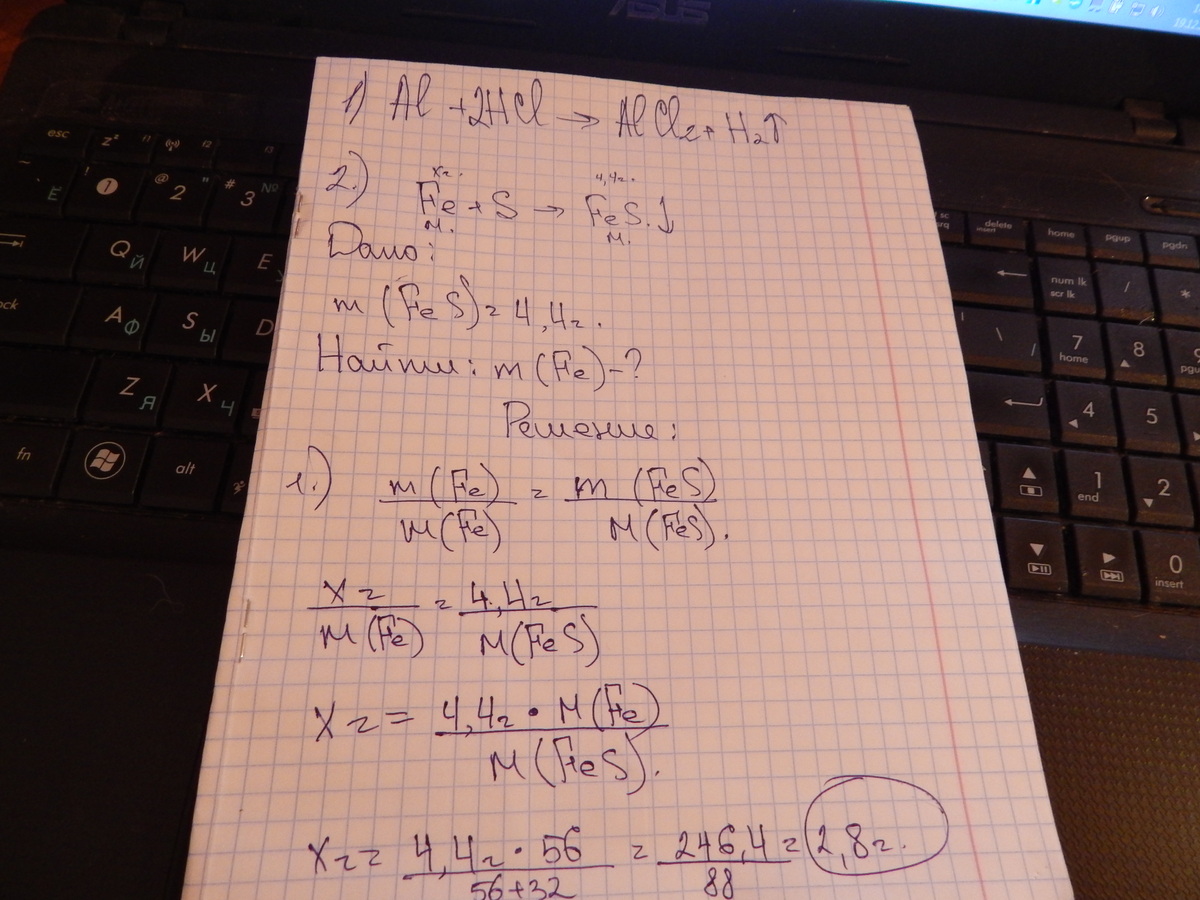 ASUS
1) Al + 2HCl → AlCl2 + H2↑
2.) Fe + S → FeS.↓
хг. 4,4г.
М. М.
Дано:
m (FeS) = 4,4г.
Найти: m (Fe) - ?
Решение:
1.) m (Fe) / M (Fe) = m (FeS) / M (FeS).
Xг / M (Fe) = 4,4г / M (FeS)
Xг = 4,4г • M (Fe) / M (FeS).
Xг = 4,4г • 56 / 56+32 = 246,4 / 88 = 2,8г.
esc
Z Я X Ч
Q Й W Ц E
A Ф S Ы D
fn alt
delete insert home pgup pgdn
num lk scr lk / *
7 home 8
4 5
1 end 2
0 insert